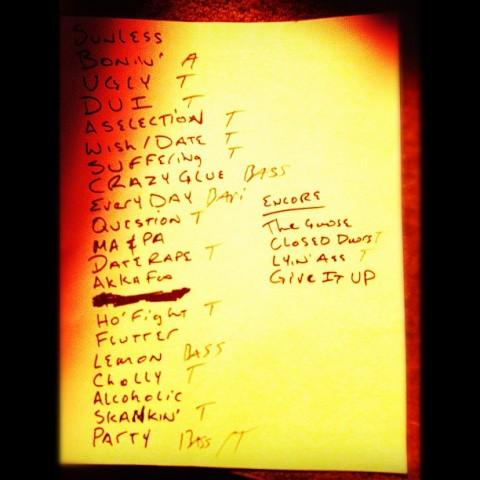 SUNLESS
BONIN' A
UGLY T
DUI T
A SELECTION T
WISH/DATE T
SUFFERING T
CRAZY GLUE BASS
EVERY DAY BARI
QUESTION T
MA & PA
DATE RAPE T
AKKAFOO
HO' FIGHT T
FLUTTER
LEMON BASS
CHOLLY T
ALCOHOLIC
SKANKIN' T
PARTY BASS/T
ENCORE
THE GOOSE
CLOSED DOORS T
LYIN' ASS T
GIVE IT UP